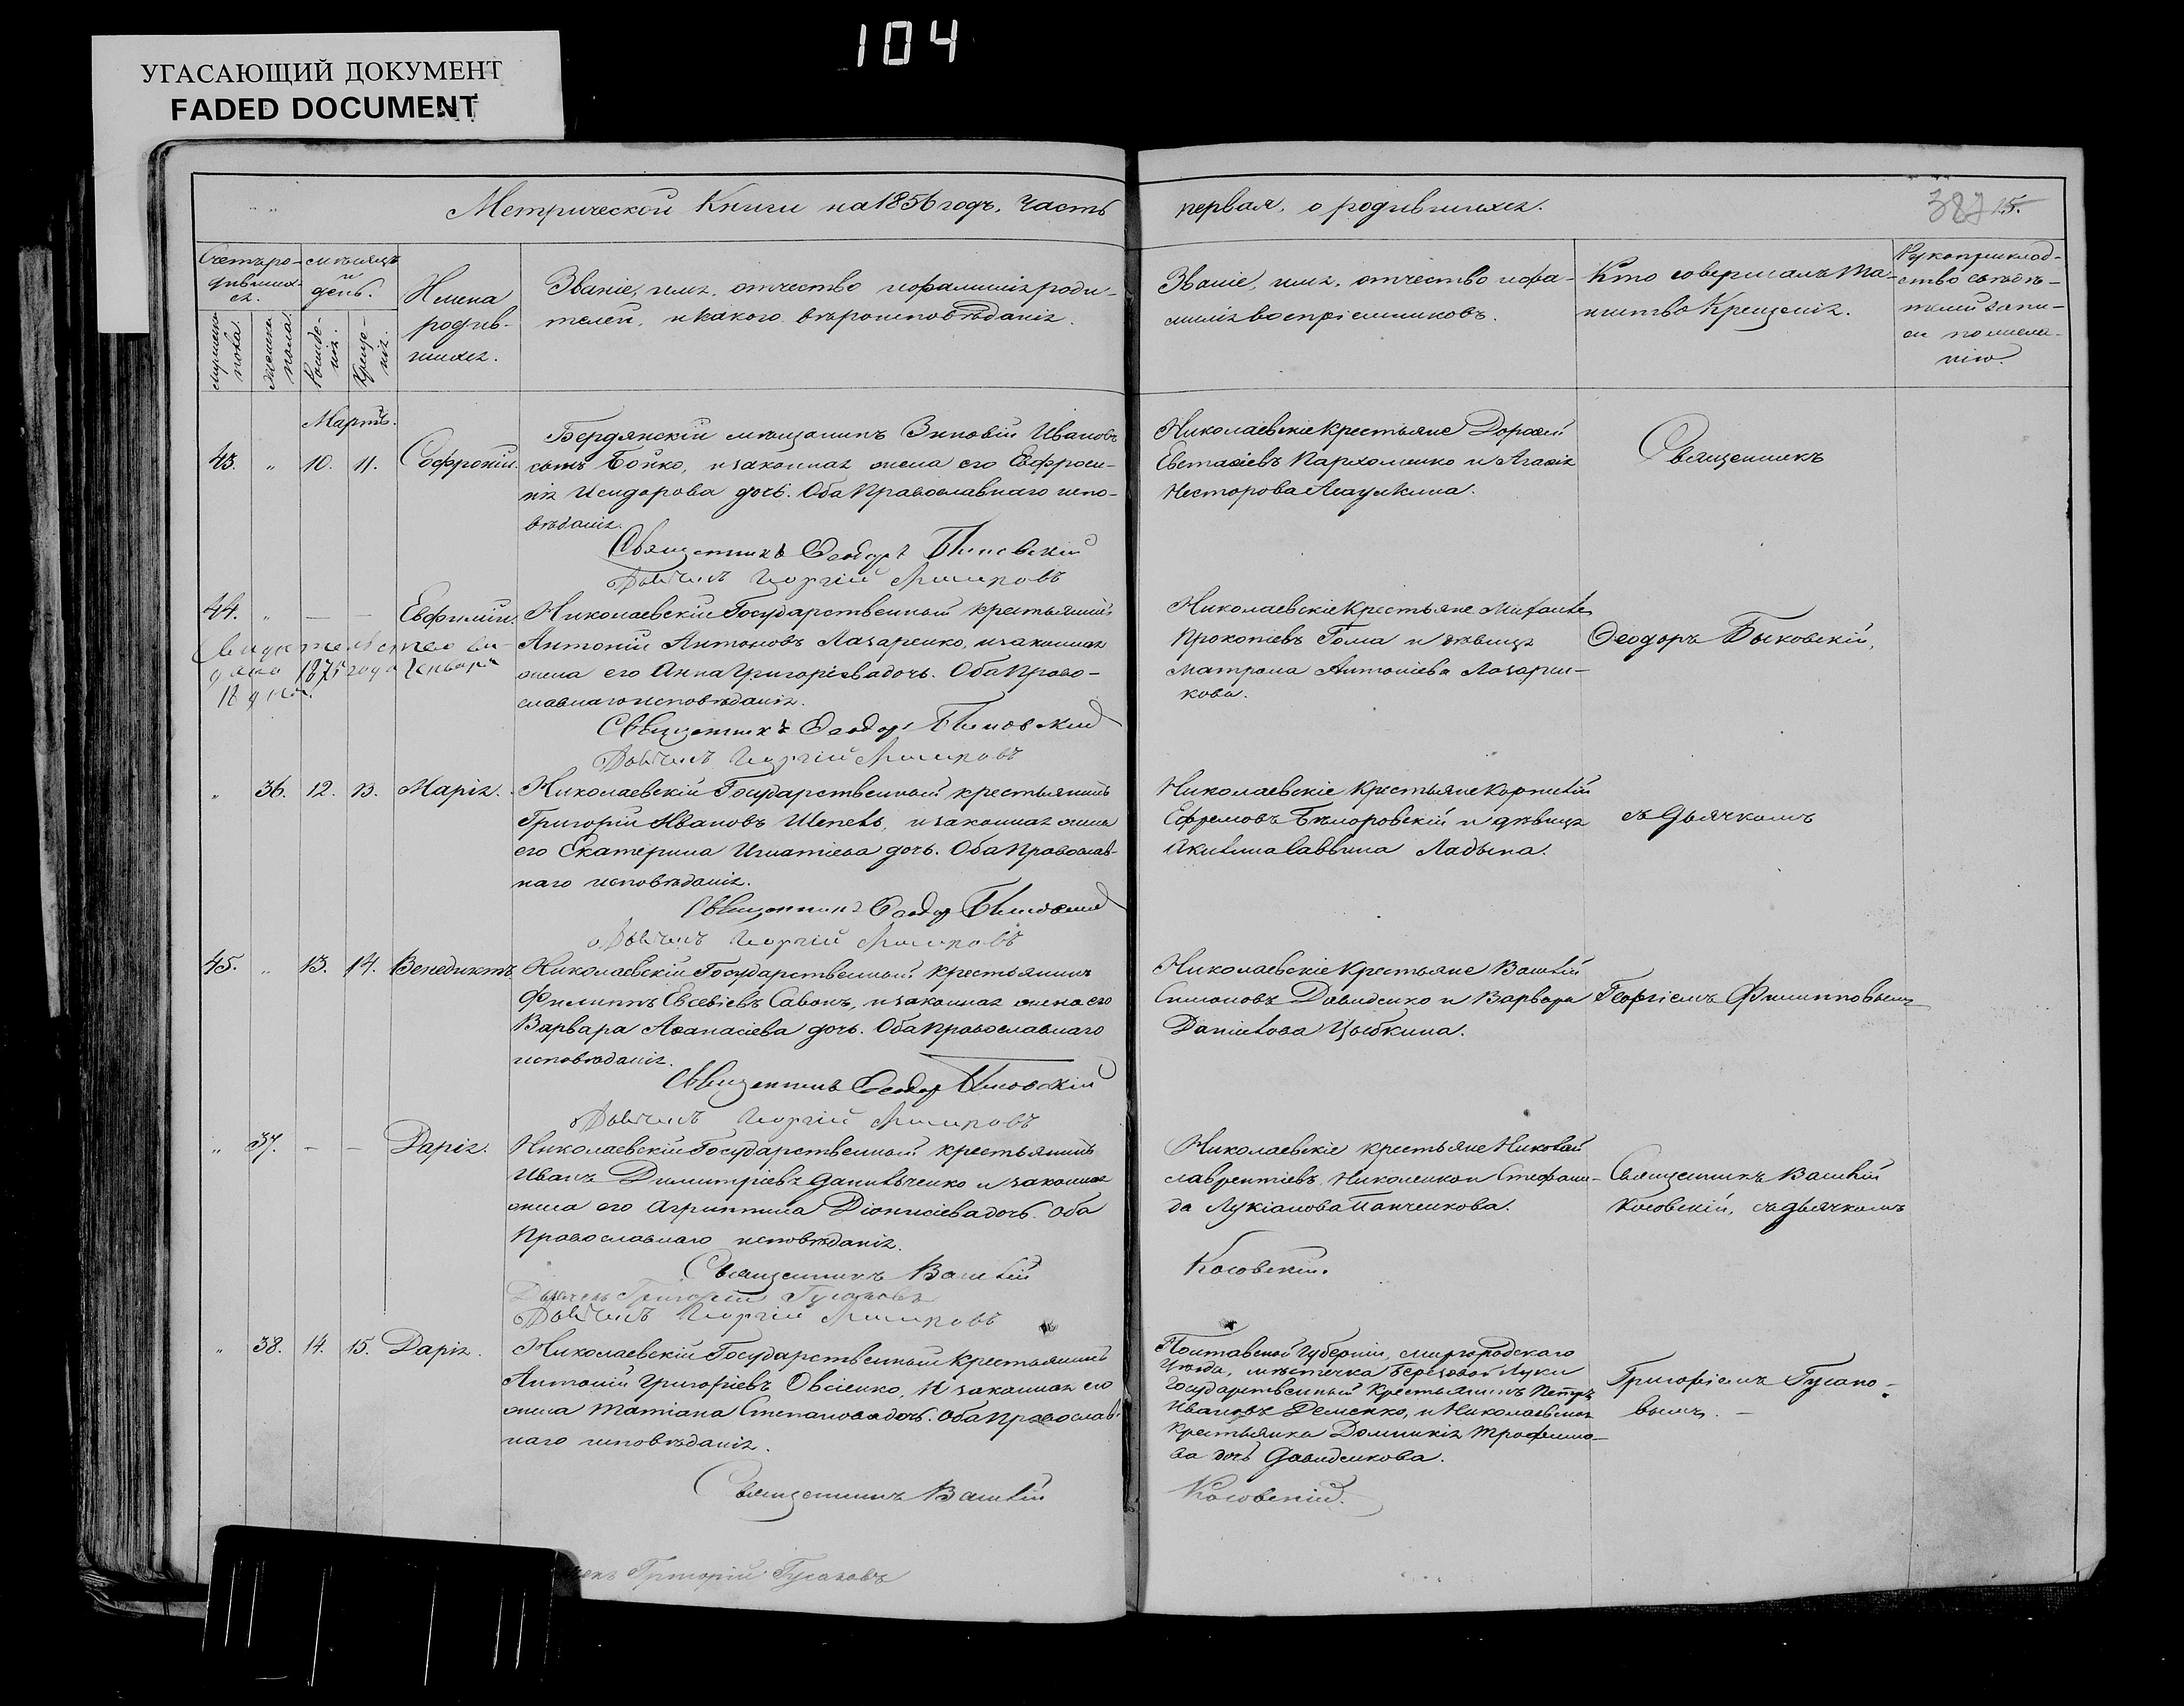 104
УГАСАЮЩИЙ ДОКУМЕНТ
FADED DOCUMENT
Метрической Книги на 1856 годъ. Часть первая, о родившихся.
387 15.
Счетъ родившихся.
мѣсяцъ и день.
мужеска пола.
женска пола.
Рожденія.
Крещенія.
Имена родившихся.
Званіе, имя, отчество и фамилія роди-
телей, и какого вѣроисповѣданія.
Званіе, имя, отчество и фа-
милія воспріемниковъ.
Кто совершалъ та-
инство Крещенія.
Рукоприклад-
ство свидѣ-
телей запи-
си по жела-
нію.
Мартъ.
43. " 10. 11. Софроній.
Бердянскій мѣщанинъ Зиновій Ивановъ
сынъ Бойко, и законная жена его Евфроси-
нія Исидорова дочь. Оба Православнаго испо-
вѣданія.
Священникъ Ѳеодоръ Быковскій
Дьячекъ Георгій
Николаевскіе крестьяне Дороѳей
Евстаѳіевъ Пархоменко и Агаѳія
Несторова
Священникъ
44. " — — Евфимій.
Свидетельство вы-
дано 1875 года Января
18 дня.
Николаевскій Государственный крестьянинъ
Антоній Антоновъ Лазаренко, и законная
жена его Анна Григоріева дочь. Оба Право-
славнаго исповѣданія.
Священникъ Ѳеодоръ Быковскій
Дьячекъ Георгій
Николаевскіе крестьяне Михаилъ
Прокопіевъ Гома и дѣвица
Матрона Антоніева Лазарен-
кова.
Ѳеодоръ Быковскій,
" 36. 12. 13. Марія.
Николаевскій Государственный крестьянинъ
Григорій Ивановъ Шепель, и законная жена
его Екатерина Игнатіева дочь. Оба Православ-
наго исповѣданія.
Священникъ Ѳеодоръ Быковскій
Дьячекъ Георгій
Николаевскіе крестьяне Корнилій
Ефремовъ и дѣвица
Акилина Саввина Ладына.
съ дьячкомъ
45. " 13. 14. Венедиктъ.
Николаевскій Государственный крестьянинъ
Филиппъ Евсевіевъ Савонъ, и законная жена его
Варвара Аѳанасіева дочь. Оба Православнаго
исповѣданія.
Священникъ Ѳеодоръ Быковскій
Дьячекъ Георгій
Николаевскіе крестьяне Василій
Симоновъ Давиденко и Варвара
Даніилова Цыбкина.
Георгіемъ Филипповымъ
" 37. — — Дарія.
Николаевскій Государственный крестьянинъ
Иванъ Димитріевъ Данильченко и законная
жена его Агриппина Діонисіева дочь. Оба
Православнаго исповѣданія.
Священникъ Василій Косовскій.
Дьячекъ Григорій Гусаковъ
Дьячекъ Георгій
Николаевскіе крестьяне Николай
Лаврентіевъ Николенко и Стефани-
да Лукіанова Панченкова.
Священникъ Василій
Косовскій, съ дьячкомъ
" 38. 14. 15. Дарія.
Николаевскій Государственный крестьянинъ
Антоній Григоріевъ Овсіенко, и законная его
жена Татіана Степанова дочь. Оба Православ-
наго исповѣданія.
Священникъ Василій Косовскій.
Григорій Гусаковъ
Полтавской Губерніи, Миргородскаго
Уѣзда, мѣстечка Березовой Луки
Государственный крестьянинъ Петръ
Ивановъ Деменко, и Николаевская
крестьянка Домникія Трофимо-
ва дочь Давиденкова.
Григоріемъ Гусако-
вымъ. —